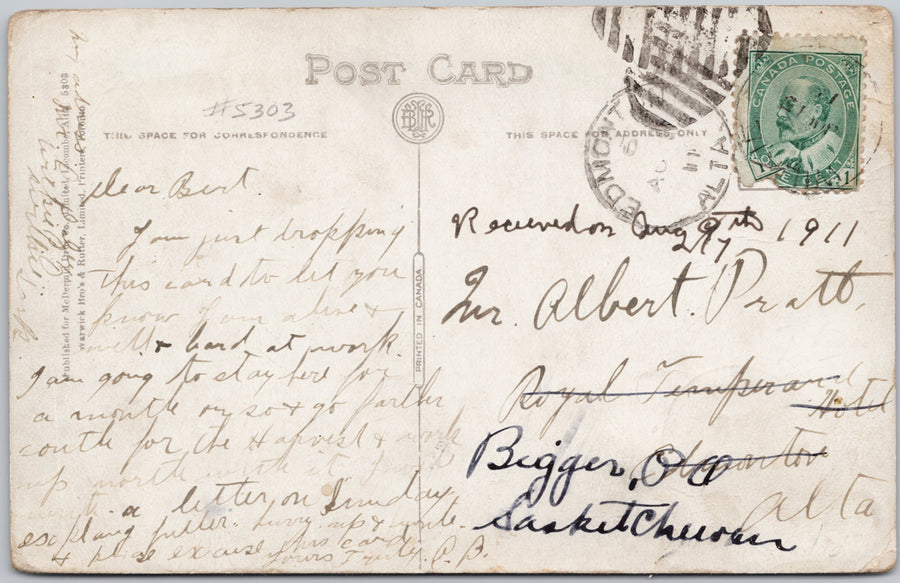 POST CARD
#5303
THIS SPACE FOR CORRESPONDENCE
THIS SPACE FOR ADDRESS ONLY
Dear Bert.
I am just dropping
this card to let you
know I am alive &
well & hard at work.
I am going to stay here for
a month or so & go farther
south for the Harvest & work
up north with it
a letter on Sunday
explang fuller. hurry up & write.
& please excuse this card
Yours Truly.
Published for McDermid Drug Co. Limited, Lacombe, Alta. 5303
Warwick Bro's & Rutter, Limited, Printers, Toronto
PRINTED IN CANADA
EDMONTON
ALTA
CANADA POSTAGE
ONE CENT
1
1
Recieved on Aug 1911
Mr. Albert. Pratt
Royal Temperance
Hotel
Edmonton
Alta
Bigger, PO
Saskatchewan